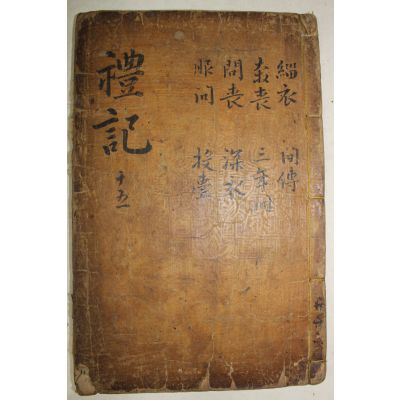 緇衣 間傳
奔喪 三年問
問喪 深衣
服問 投壺
禮記 十五